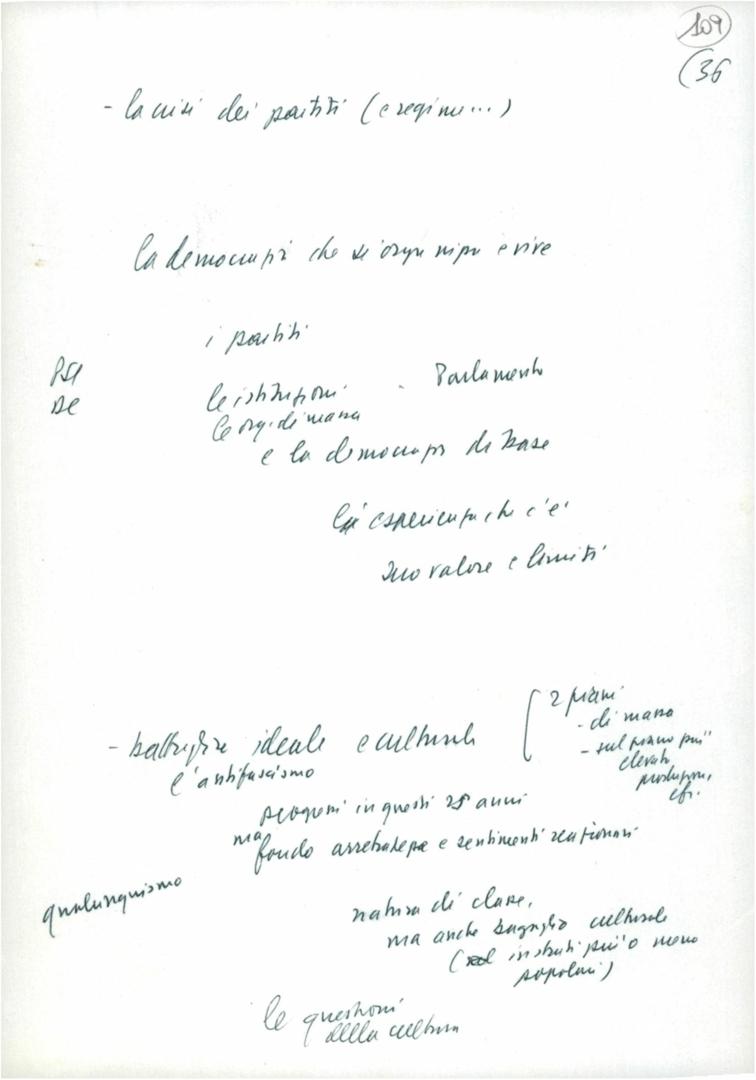 109
(36
- la crisi dei partiti (e regime...)
la democrazia che si organizza e vive
i partiti
PSI
DC
le istituzioni - Parlamento
le org. di massa
e la democrazia di base
l'esperienza che c'è
suo valore e limiti
- battaglia ideale e culturale
l'antifascismo
2 piani
- di massa
- sul piano più
elevato
produzioni,
progressi in questi 25 anni
ma
fondo arretratezza e sentimenti reazionari
qualunquismo
natura di classe,
ma anche bagaglio culturale
( in strati più o meno
popolari)
le questioni
della cultura